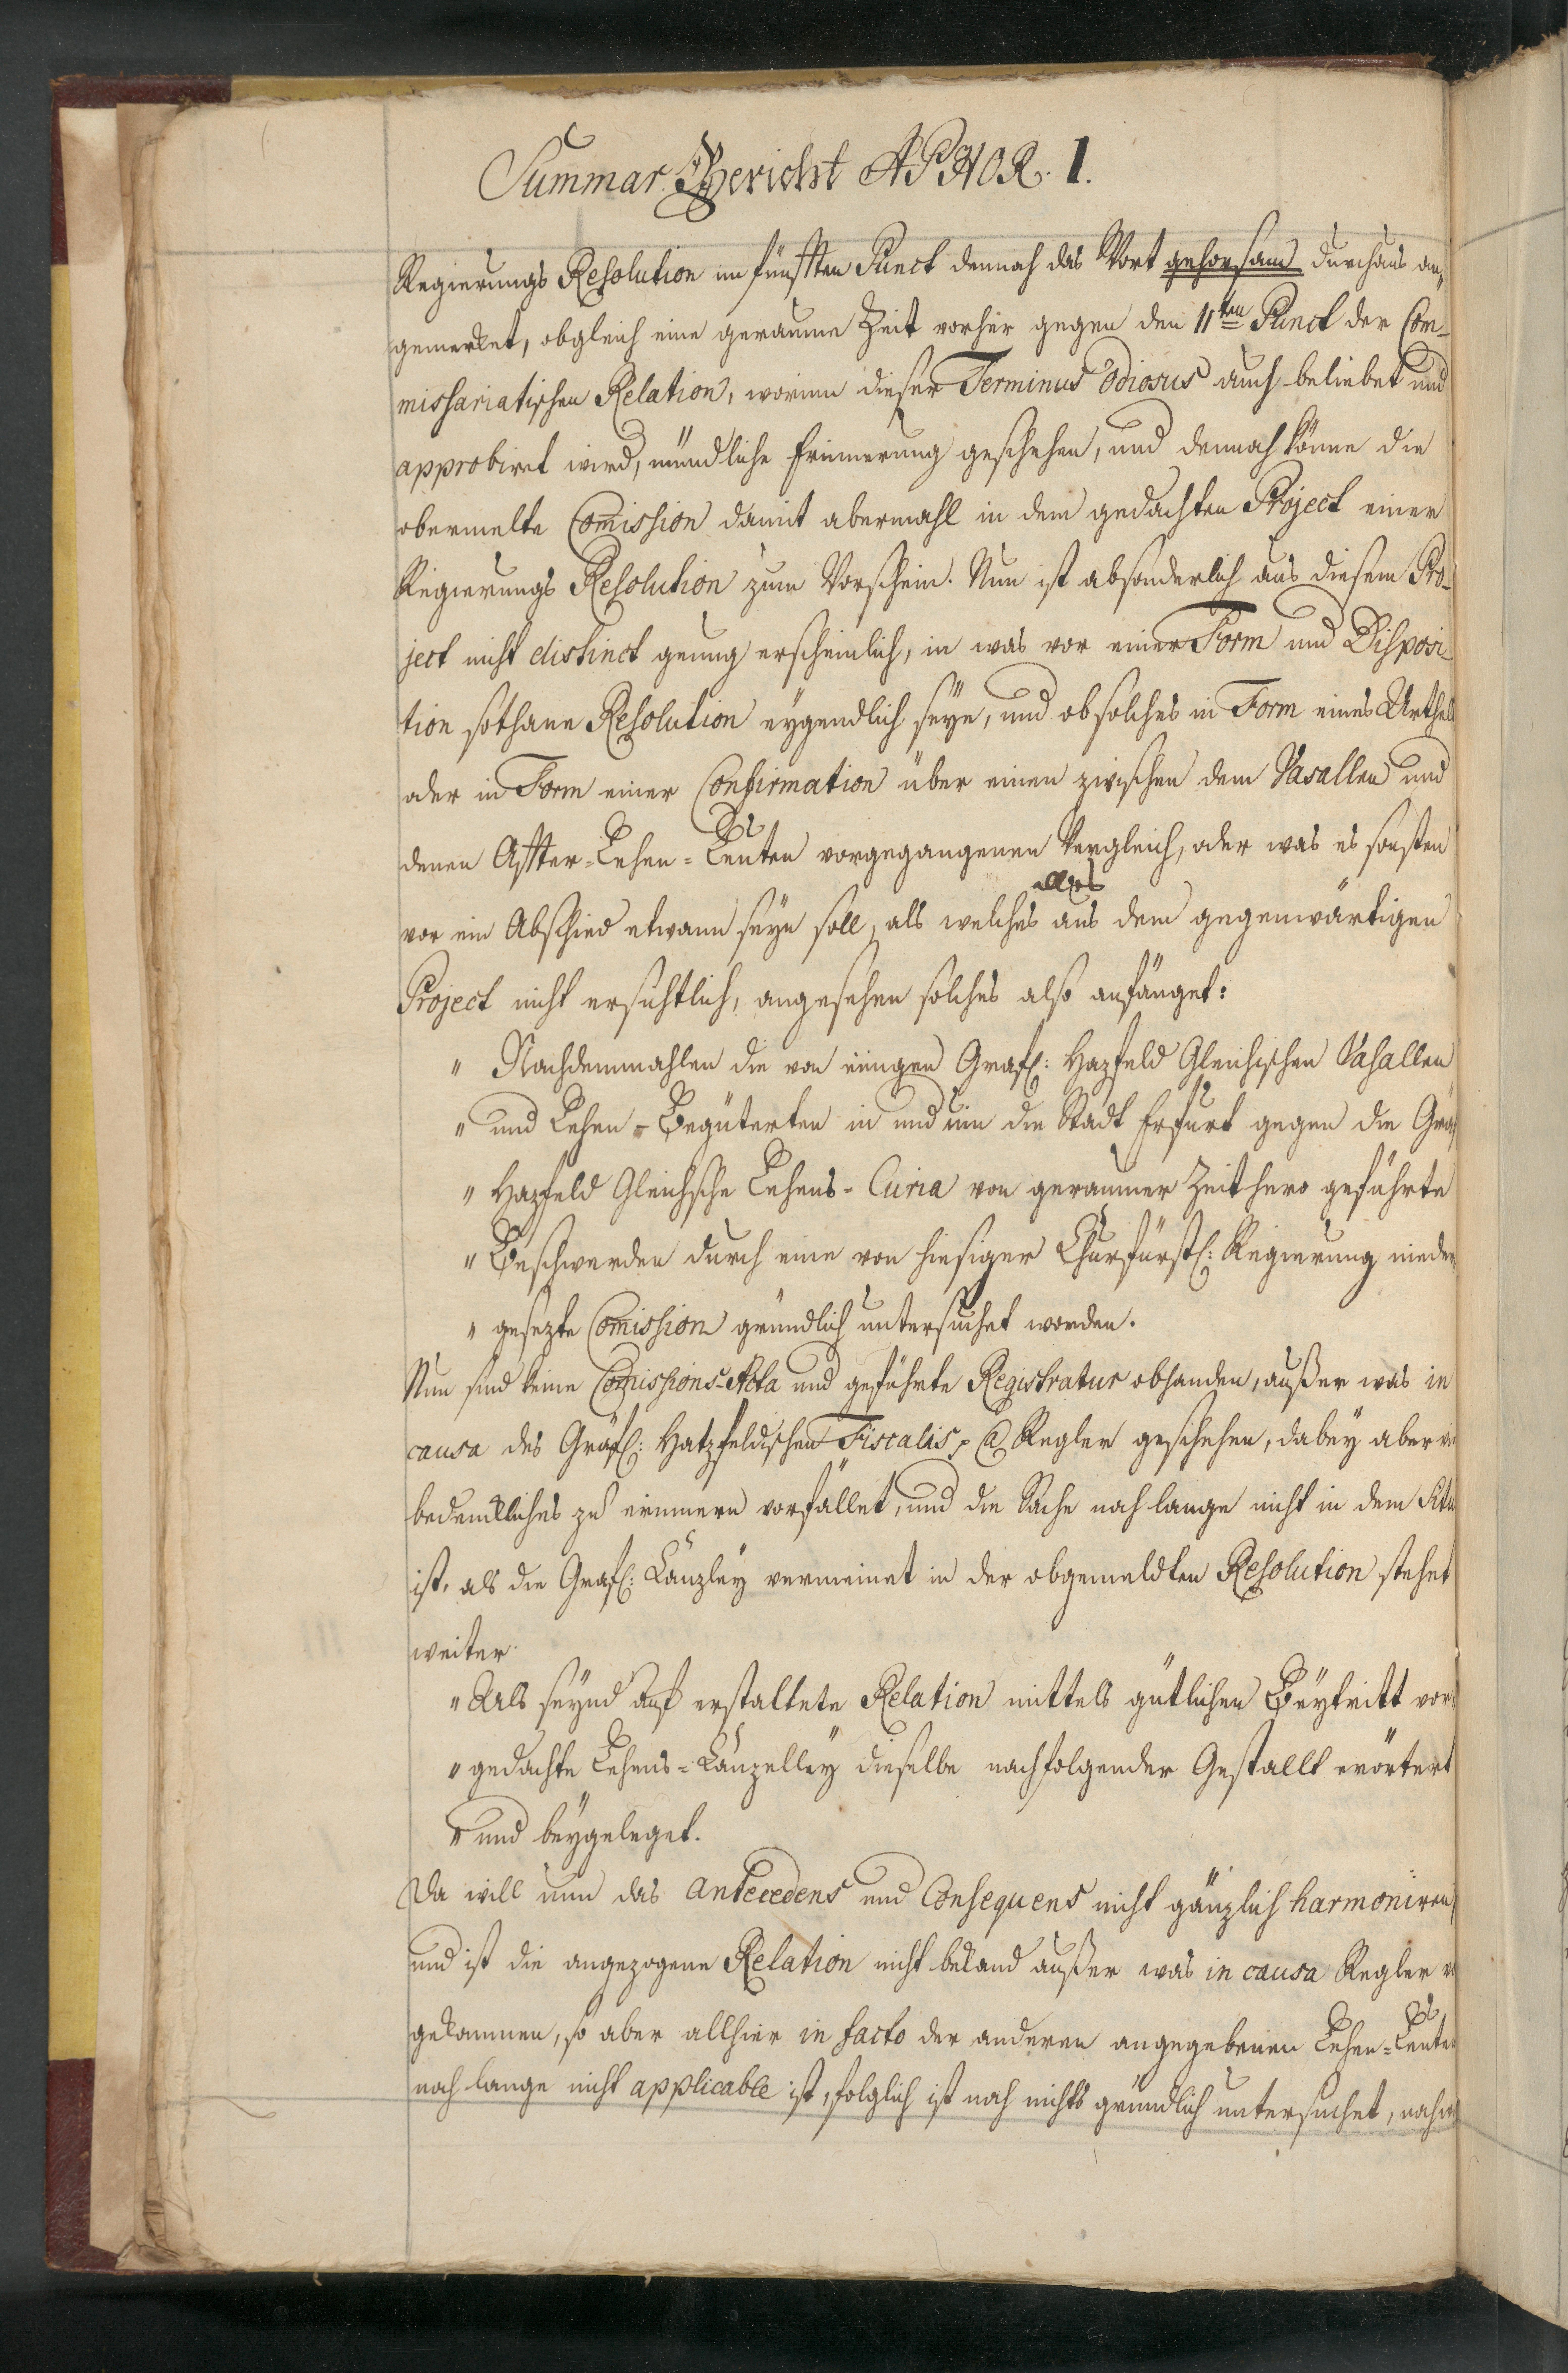 Summar. Bericht APHOR. I.
Regierungs Resolution im fünfften Punct dennoch das Wort gehorsams durchaus an„
gemerket, obgleich eine geraume Zeit vorher gegen den 11ten Punct der Com-
missariatischen Relation, worinn dieser Terminus odiosus auch beliebet und
approbiret wird, mündliche Erinnerung geschehen, und dennoch könne die
obermelte Comission damit abermahl in dem gedachten Project einer
Regierungs Resolution zum Vorschein. Nun ist absonderlich aus diesem Pro-
ject nicht distinct genung erscheinlich, in was vor einer Form und Disposi-
tion sothane Resolution eygendlich seye, und ob solches in Form eines Urthels
oder in Form einer Confirmation über einen zwischen dem Vasallen und
denen Affter-Lehen-Leuten vorgegangenen Vergleich, oder was es sonsten
vor ein Abschied etwann seyn soll, als welches alles aus dem gegenwärtigen
Project nicht ersichtlich, angesehen solches also anfänget:
„ Nachdemmahlen die von einigen Gräfl: Hazfeld Gleichischen Vasallen
„ und Lehen-Begüterten in und um die Stadt Erfurt gegen die Gräf
„ Hazfeld Gleichsche Lehens-Curia von geraumer Zeit hero geführte
„ Beschwerden durch eine von hiesiger Churfürstl: Regierung nieder
„ gesezte Comission gründlich untersuchet worden.
Nun sind keine Comissions-Acta und geführte Registratur obhanden, außer was in
causa des Gräfl: Hatzfeldischen Fiscalis, Regler geschehen, dabey aber
bedencklliches zu erinnern vorfället, und die Sache noch lange nicht in dem Situ
ist, als die Gräfl: Canzley vermeinet in der obgemeldten Resolution stehet
weiter
„ Als seynd auf erstattete Relation mittels gütlichen Beytritt vor
„ gedachte Lehens-Canzelley dieselbe nachfolgender Gestallt erörtert
„ und beygeleget.
Da will nun das antecedens und Consequens nicht gänzlich harmoniren,
und ist die angezogene Relation nicht bekand außer was in causa Regler
gekommen, so aber allhier in facto der anderen angegebenen Lehen-Leute
noch lange nicht applicable ist, folglich ist noch nichts gründlich untersuchet, noch